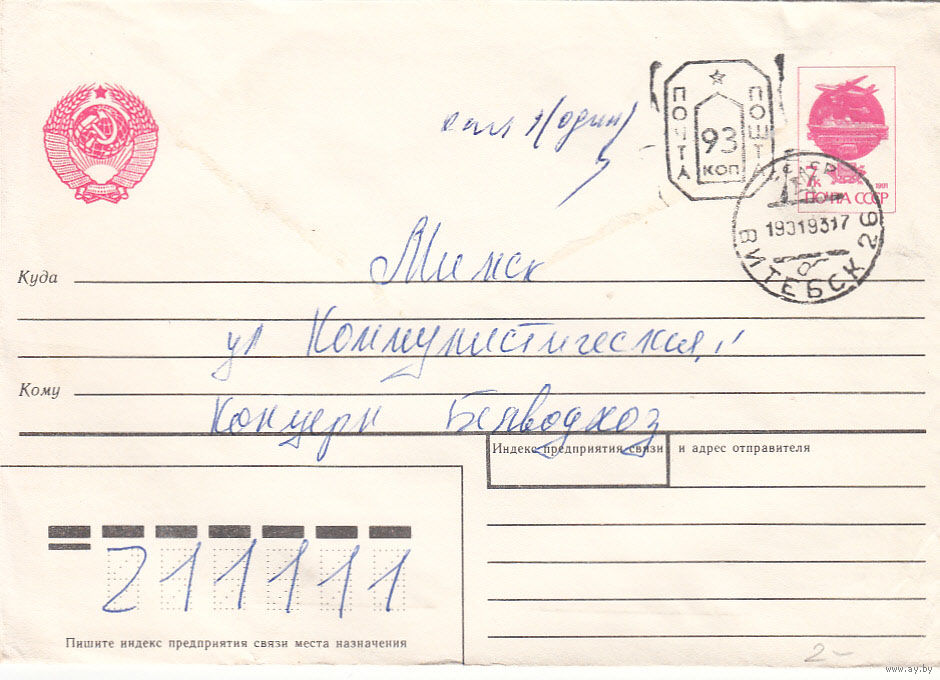 ПОЧТА 93 КОП ПОШТА
7к
1991
ПОЧТА СССР
(один)
СССР
19019317
ВИТЕБСК 26
Куда Минск
ул Коммунистическая, 1
Кому
Концерн Белводхоз
Индекс предприятия связи и адрес отправителя
211111
Пишите индекс предприятия связи места назначения
2-
www.ay.by